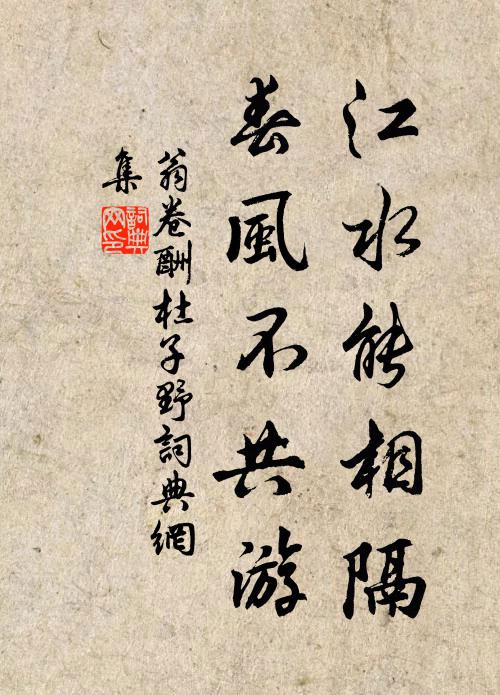 江水能相隔
春風不共游
翁卷酬杜子野詞典網
集
詞典網印